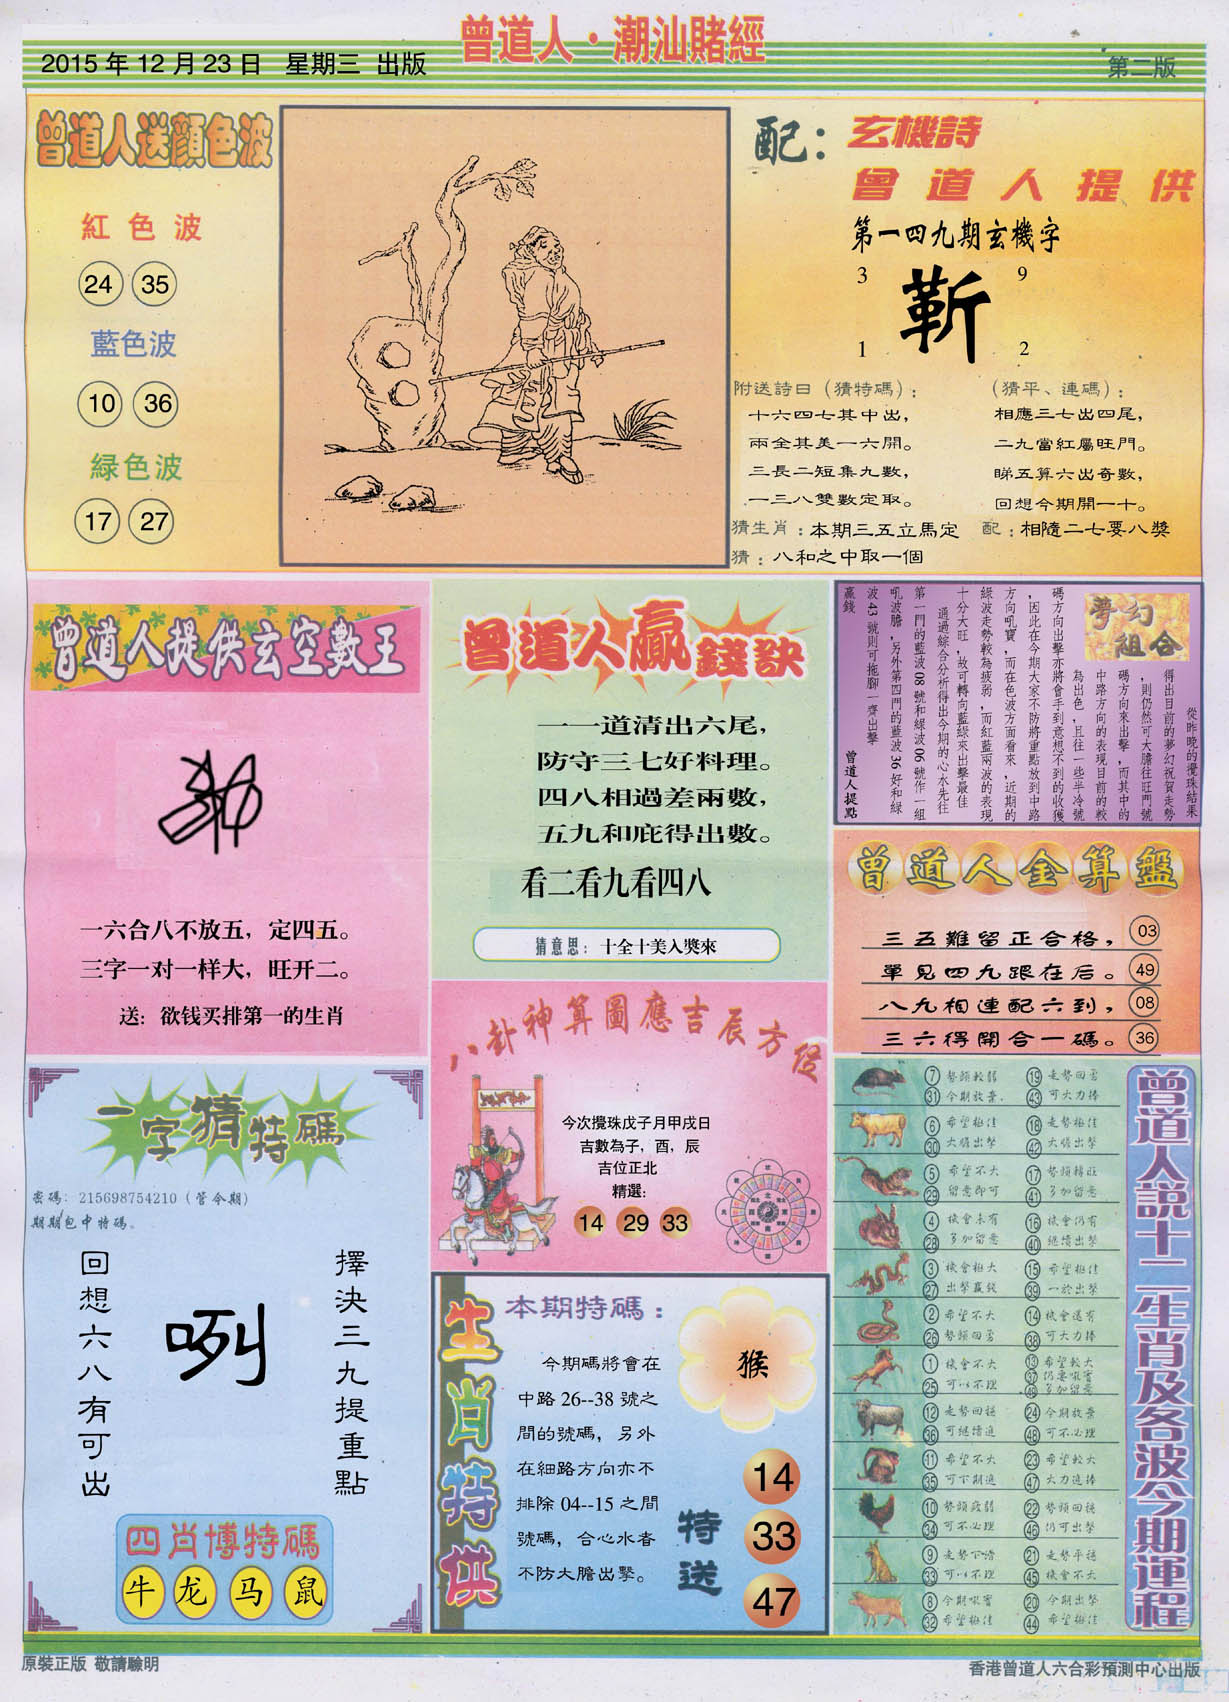 曾道人·潮汕賭經
2015年12月23日 星期三 出版
第二版
曾道人送顏色波
紅色波
24 35
藍色波
10 36
緑色波
17 27
配：玄機詩
曾道人提供
第一四九期玄機字
3 9
靳
1 2
附送詩曰（猜特碼）：
十六四七其中出，
兩全其美一六開。
三長二短集九數，
一三八雙數定取。
（猜平、連碼）：
相應三七出四尾，
二九當紅屬旺門。
睇五算六出奇數，
回想今期開一十。
猜生肖：本期三五立馬定
配：相隨二七要八獎
猜：八和之中取一個
曾道人提供玄空數王
一六合八不放五，定四五。
三字一对一样大，旺开二。
送：欲钱买排第一的生肖
曾道人贏錢訣
一一道清出六尾，
防守三七好料理。
四八相過差兩數，
五九和庇得出數。
看二看九看四八
猜意思：十全十美入獎來
夢幻組合
從昨晚的攪珠結果
得出目前的夢幻祝賀走勢
，則仍然可大膽往旺門號
碼方向來出擊，而其中的
中路方向的表現目前的較
為出色，且往一些半冷號
碼方向出擊亦將會手到意想不到的收獲
，因此在今期大家不防將重點放到中路
方向吼寶，而在色波方面看來，近期的
綠波走勢較為疲弱，而紅藍兩波的表現
十分大旺，故可轉向藍綠來出擊最佳
通過綜合分析得出今期的心水先往
第一門的藍波08號和綠波06號作一組
吼波膽，另外第四門的藍波36好和綠
波43號則可拖腳一齊出擊
贏錢
曾道人提點
曾道人金算盤
三五難留正合格， 03
單見四九跟在后。 49
八九相連配六到， 08
三六得開合一碼。 36
八卦神算圖應吉辰方位
今次攪珠戊子月甲戌日
吉數為子，酉，辰
吉位正北
精選:
14 29 33
一字猜特碼
密碼：215698754210（管令期）
期期包中特碼。
擇決三九提重點
咧
回想六八有可出
四肖博特碼
牛 龙 马 鼠
生肖特供
本期特碼：
今期碼將會在
中路26--38號之
間的號碼，另外
在細路方向亦不
排除04--15之間
號碼，合心水者
不防大膽出擊。
猴
特送
14
33
47
曾道人説十二生肖及各波今期運程
7 勢頭較弱 19 走勢回勇
31 今期放棄 43 可大力捧
6 希望極佳 18 走勢極佳
30 大膽出擊 42 大膽出擊
5 希望不大 17 勢頭轉旺
29 留意即可 41 多加留意
4 機會未有 16 機會仍有
28 多加留意 40 繼續出擊
3 機會極大 15 希望極佳
27 出擊贏錢 39 一於出擊
2 希望不大 14 機會還有
26 勢頭回勇 38 可大力捧
1 機會不大 13 希望較大
25 可以不理 37 仍要吸寶
49 多加留意
12 走勢回穩 24 今期放棄
36 可繼續追 48 可不必理
11 希望不大 23 希望較大
35 可下期追 47 大力追捧
10 勢頭疲弱 22 勢頭回穩
34 可不必理 46 仍可出擊
9 走勢下滑 21 走勢平穩
33 可以不理 45 機會不大
8 今期吸寶 20 今期出擊
32 希望極佳 44 希望極佳
原裝正版 敬請驗明
香港曾道人六合彩預測中心出版